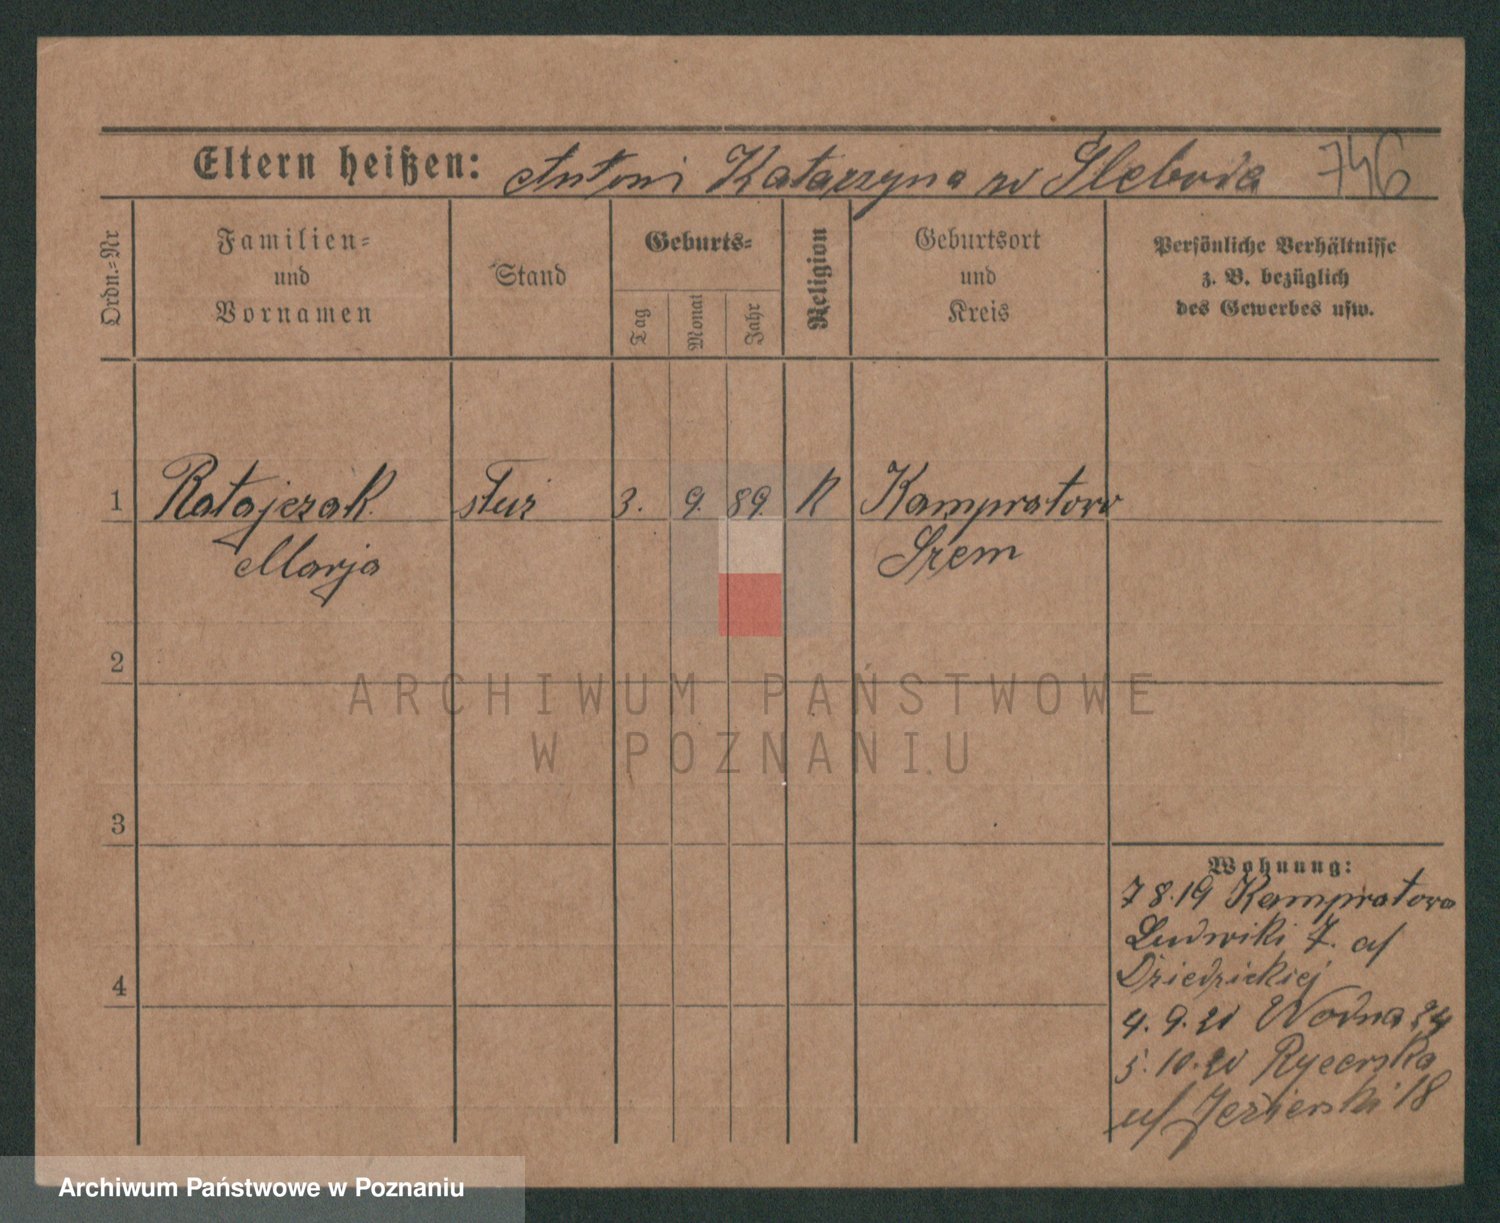 Eltern heißen: Antoni Katarzyna zd Śleboda 746
Ordn.-Nr
Familien-
und
Vornamen
Stand
Geburts-
Tag
Monat
Jahr
Religion
Geburtsort
und
Kreis
Persönliche Verhältnisse
z. B. bezüglich
des Gewerbes usw.
1 Ratajczak służ 3. 9. 89 K Kampratowo
Marja Śrem
2
ARCHIWUM PAŃSTWOWE
W POZNANIU
3
Wohnung:
7 8.19 Kampratowo
Ludwiki 7.
Dziedzickiej
4
4. 9. 20 Wodna 24
5. 10. 20 Rycerska
Jezierski 18
Archiwum Państwowe w Poznaniu